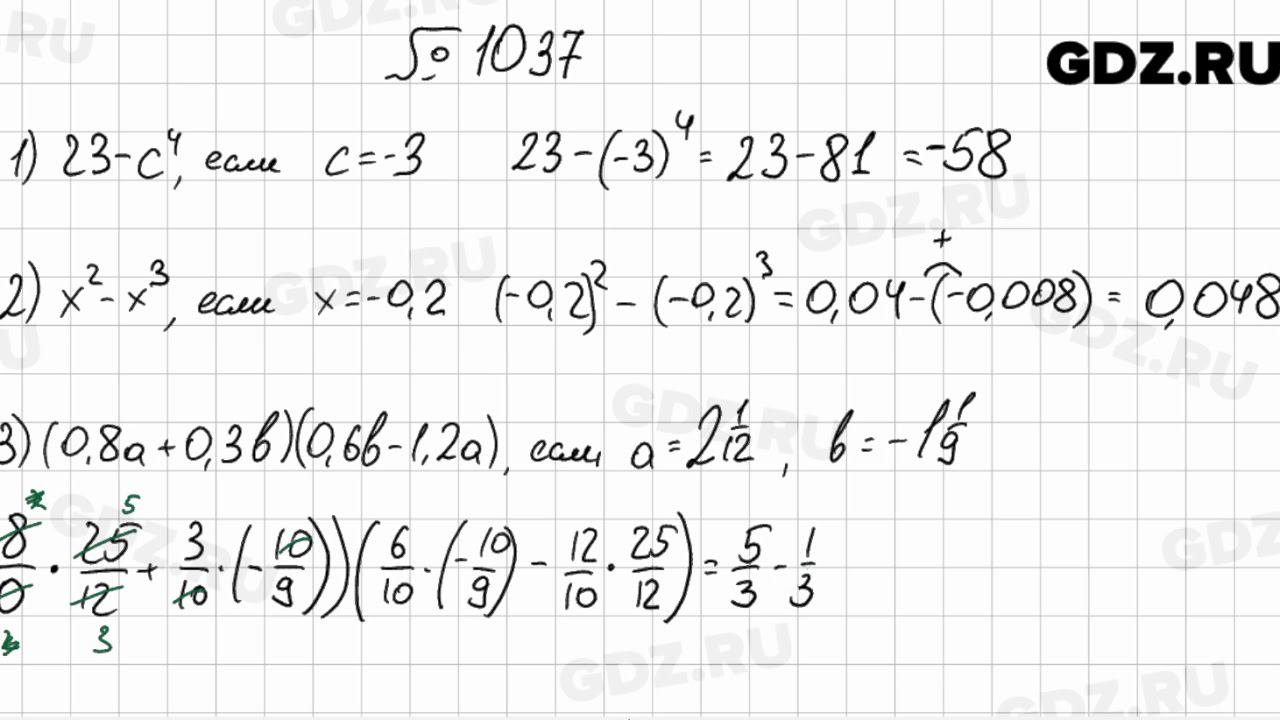 № 1037
GDZ.RU
1) 23-c⁴, если c=-3 23-(-3)⁴=23-81=-58
2) x²-x³, если x=-0,2 (-0,2)²-(-0,2)³=0,04-(-0,008)=0,048
+
3) (0,8a+0,3b)(0,6b-1,2a), если a=2 1/12, b=-1 1/9
5
8/10 · 25/12 + 3/10 · (-10/9))(6/10 · (-10/9) - 12/10 · 25/12) = 5/3 - 1/3
3